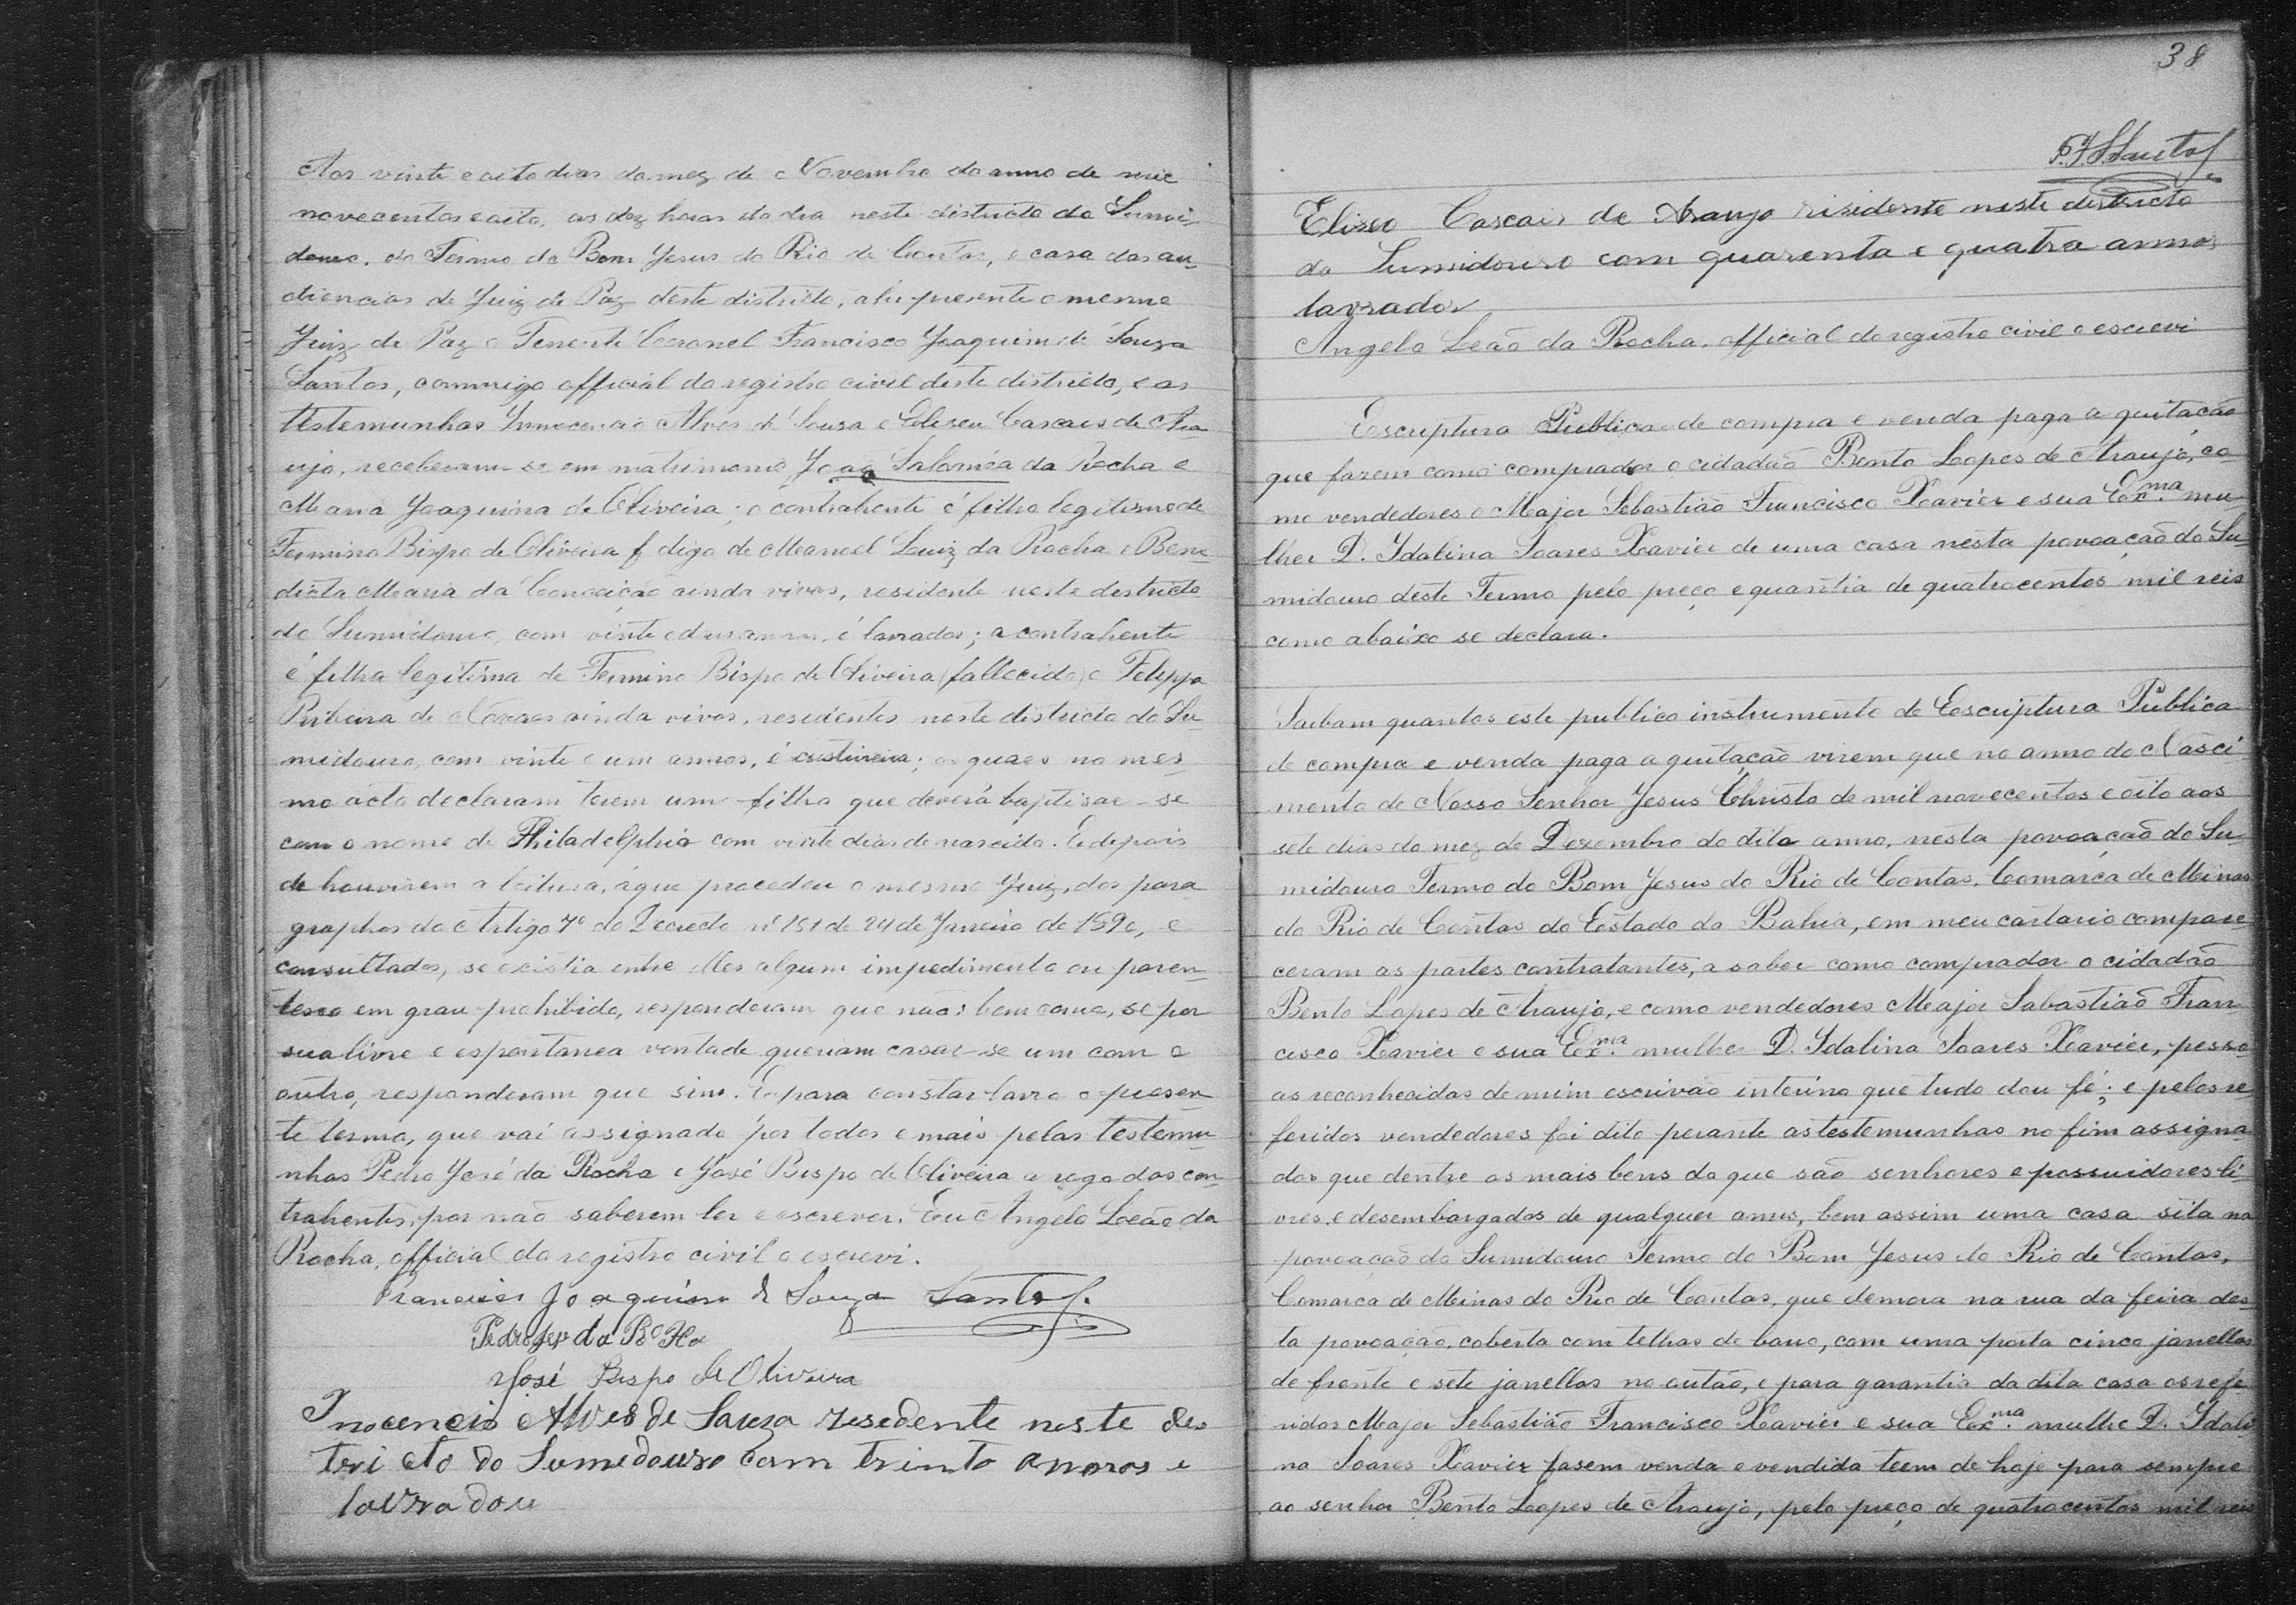 Aos vinte e oito dias do mez de Novembro do anno de mil
novecentos e oito, as dez horas do dia neste districto do Sumi-
douro, do Termo do Bom Jesus do Rio de Contas, e casa das au-
diencias do Juiz de Paz deste districto, ahi presente o mesmo
Juiz de Paz o Tenente Coronel Francisco Joaquim de Souza
Santos, commigo official do registro civil deste districto, e as
testemunhas Innocencio Alves de Sousa e Eliseu Cascaes de Ara
ujo, receberam-se em matrimonio João Saloméa da Rocha e
Maria Joaquina de Oliveira; o contrahente é filho legitimo de
Fermino Bispo de Oliveira f digo de Manoel Luiz da Rocha e Bene
dicta Maria da Conceição ainda vivos, residente neste districto
do Sumidouro, com vinte e dus annos, é lavrador; a contrahente
é filha legitima de Fermino Bispo de Oliveira (fallecido) e Felippa
Ribeira de Novaes ainda vivos, residentes neste districto do Su-
midouro, com vinte e um annos, é custureira; os quaes no mes-
mo acto declaram terem um filha que deverá baptisar-se
com o nome de Philadelphia com vinte dias de nascida. E depois
de houvirem a leitura, á que procedeu o mesmo Juiz, dos para
graphos do Artigo 7º do Decreto nº 181 de 24 de Janeiro de 1890, e
consultados, se existia entre elles algum impedimento ou paren-
tesco em grau prohibido, responderam que não: bem como, se por
sua livre e espontanea vontade queriam casar-se um com o
outro, responderam que sim. E para constar lavro o presen
te termo, que vai assignado por todos e mais pelas testemu
nhas Pedro José da Rocha e José Bispo de Oliveira a rogo dos con-
trahentes, por não saberem ler e escrever. Eu Angelo Leão da
Rocha, official do registro civil o escrevi.
Francisco Joaquim de Souza Santos
Pedro da
José Bispo de Oliveira
Inocencio Alves de Sauza resedente neste des
tri cto do Sumedouro com trinta annos e
lavrador
38
F. J. S. Santos
Eliseo Cascais de Araujo risidente neste districto
do Sumidouro com quarenta e quatra annos
lavrador
Angelo Leão da Rocha, official do registro civil o escrevi
Escriptura Publica de compra e venda paga a quitação
que fazem como comprador o cidadão Bento Lopes de Araujo, co-
mo vendedores o Major Sebastião Francisco Xavier e sua Exma. mu-
lher D. Idalina Soares Xavier de uma casa nesta povoação do Su-
midouro deste Termo pelo preço e quantia de quatrocentos mil reis
como abaixo se declara.
Saibam quantos este publico instrumento de Escriptura Publica
de compra e venda paga a quitação virem que no anno do Nasci
mento de Nosso Senhor Jesus Christo de mil novecentos e oito aos
sete dias do mez de Dezembro do dito anno, nesta povoação do Su-
midouro Termo do Bom Jesus do Rio de Contas. Comarca de Minas
do Rio de Contas do Estado da Bahia, em meu cartorio compare
ceram as partes contratantes, a saber como comprador o cidadão
Bento Lopes de Araujo, e como vendedores Major Sabastião Fran
cisco Xavier e sua Exma. mulher D. Idalina Soares Xavier, pesso
as reconhecidas de mim escrivão interino que tudo dou fé; e pelos re
feridos vendedores foi dito perante as testemunhas no fim assigna-
das que dentre os mais bens do que são senhores e possuidores li
vres e desembargados de qualquer anus, bem assim uma casa sita na
povoação do Sumidouro Termo do Bom Jesus do Rio de Contas,
Comarca de Minas do Rio de Contas, que demora na rua da feira des-
ta povoação, coberta com telhas de barro, com uma porta cinco janellas
de frente e sete janellas no outão, e para garantia da dita casa os refe
ridos Major Sebastião Francisco Xavier e sua Exma. mulhe D. Idali
na Soares Xavier fasem venda e vendida teem de hoje para sempre
ao senhor Bento Lopes de Araujo, pelo preço de quatrocentos mil reis